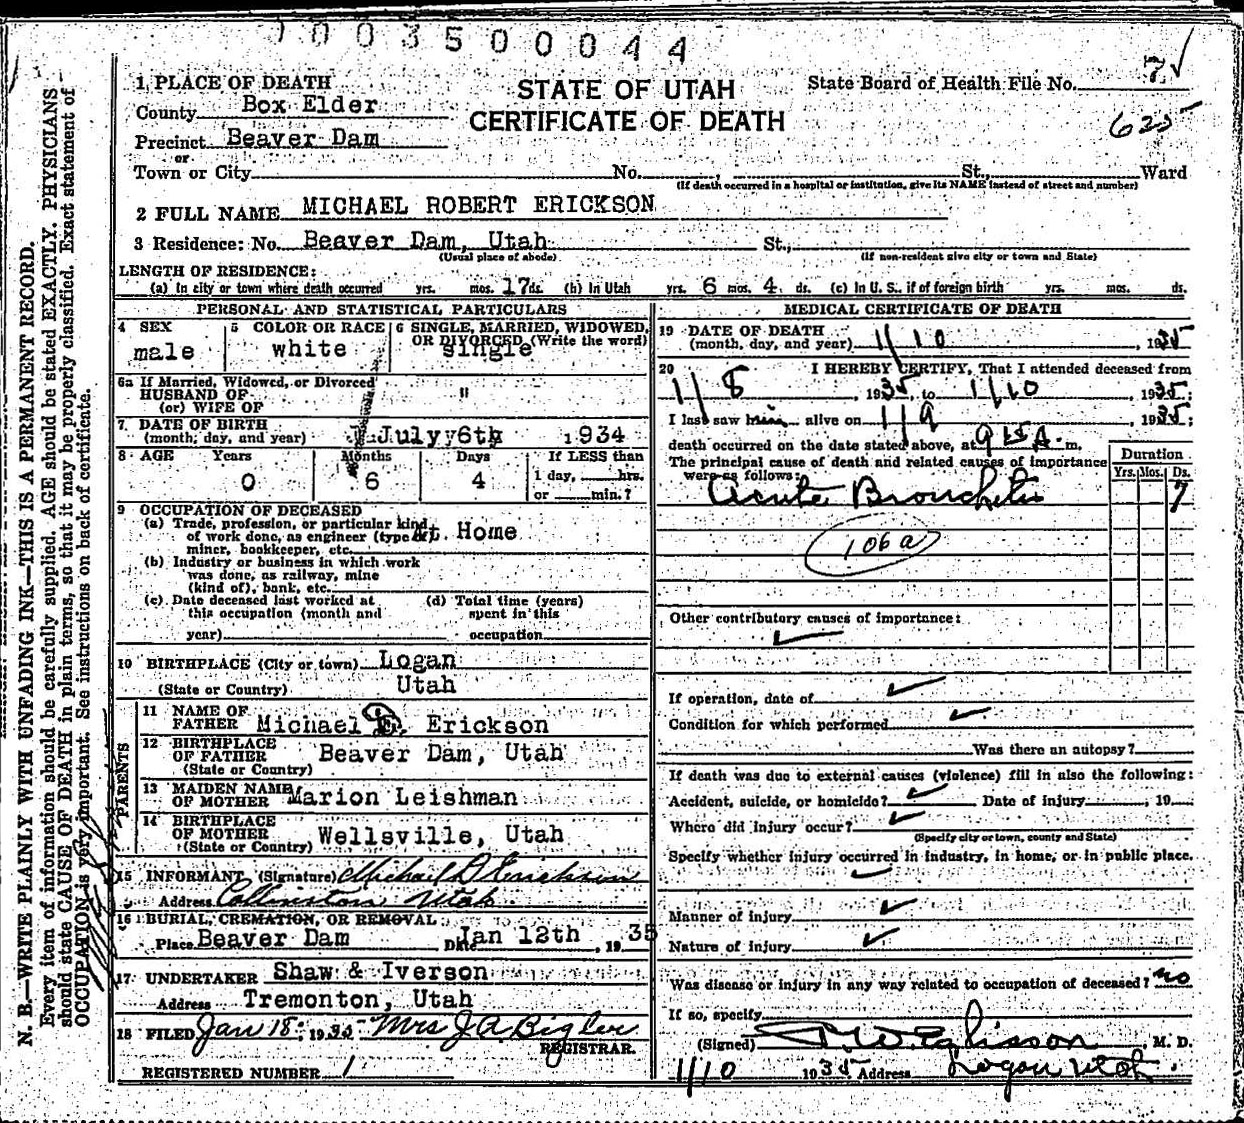 7003500044
STATE OF UTAH
CERTIFICATE OF DEATH
State Board of Health File No. 7
625
1 PLACE OF DEATH
County Box Elder
Precinct Beaver Dam
or
Town or City No. St., Ward
(If death occurred in a hospital or institution, give its NAME instead of street and number)
2 FULL NAME MICHAEL ROBERT ERICKSON
3 Residence: No. Beaver Dam, Utah St.,
(Usual place of abode) (If non-resident give city or town and State)
LENGTH OF RESIDENCE:
(a) In city or town where death occurred yrs. mos. 17 ds. (b) In Utah yrs. 6 mos. 4 ds. (c) In U. S., if of foreign birth yrs. mos. ds.
PERSONAL AND STATISTICAL PARTICULARS
4 SEX male
5 COLOR OR RACE white
6 SINGLE, MARRIED, WIDOWED, OR DIVORCED (Write the word) single
6a If Married, Widowed, or Divorced
HUSBAND OF "
(or) WIFE OF
7. DATE OF BIRTH
(month, day, and year) July 6th 1934
8 AGE Years Months Days If LESS than
0 6 4 1 day, hrs.
or min.?
9 OCCUPATION OF DECEASED
(a) Trade, profession, or particular kind
of work done, as engineer (type At Home
miner, bookkeeper, etc.
(b) Industry or business in which work
was done, as railway, mine
(kind of), bank, etc.
(c) Date deceased last worked at (d) Total time (years)
this occupation (month and spent in this
year) occupation
10 BIRTHPLACE (City or town) Logan
(State or Country) Utah
PARENTS
11 NAME OF
FATHER Michael D. Erickson
12 BIRTHPLACE
OF FATHER Beaver Dam, Utah
(State or Country)
13 MAIDEN NAME
OF MOTHER Marion Leishman
14 BIRTHPLACE
OF MOTHER Wellsville, Utah
(State or Country)
15 INFORMANT (Signature) Michael D Erickson
Address Collinston Utah
16 BURIAL, CREMATION, OR REMOVAL
Place Beaver Dam Date Jan 12th, 1935
17 UNDERTAKER Shaw & Iverson
Address Tremonton, Utah
18 FILED Jan 18, 1935 Mrs J A Bigler
REGISTRAR.
REGISTERED NUMBER 1
MEDICAL CERTIFICATE OF DEATH
19 DATE OF DEATH
(month, day, and year) 1/10, 1935
20 I HEREBY CERTIFY, That I attended deceased from
1/8, 1935, to 1/10, 1935
I last saw him alive on 1/9, 1935;
death occurred on the date stated above, at 9 15 A. m.
The principal cause of death and related causes of importance
were as follows: Duration
Yrs. Mos. Ds.
Acute Bronchitis 7
106a
Other contributory causes of importance:
If operation, date of
Condition for which performed
Was there an autopsy?
If death was due to external causes (violence) fill in also the following:
Accident, suicide, or homicide? Date of injury , 19
Where did injury occur?
(Specify city or town, county and State)
Specify whether injury occurred in industry, in home, or in public place.
Manner of injury
Nature of injury
Was disease or injury in any way related to occupation of deceased? no
If so, specify
(Signed) M. D.
1/10 1935 Address Logan Utah.
N. B.—WRITE PLAINLY WITH UNFADING INK—THIS IS A PERMANENT RECORD.
Every item of information should be carefully supplied. AGE should be stated EXACTLY. PHYSICIANS
should state CAUSE OF DEATH in plain terms, so that it may be properly classified. Exact statement of
OCCUPATION is very important. See instructions on back of certificate.